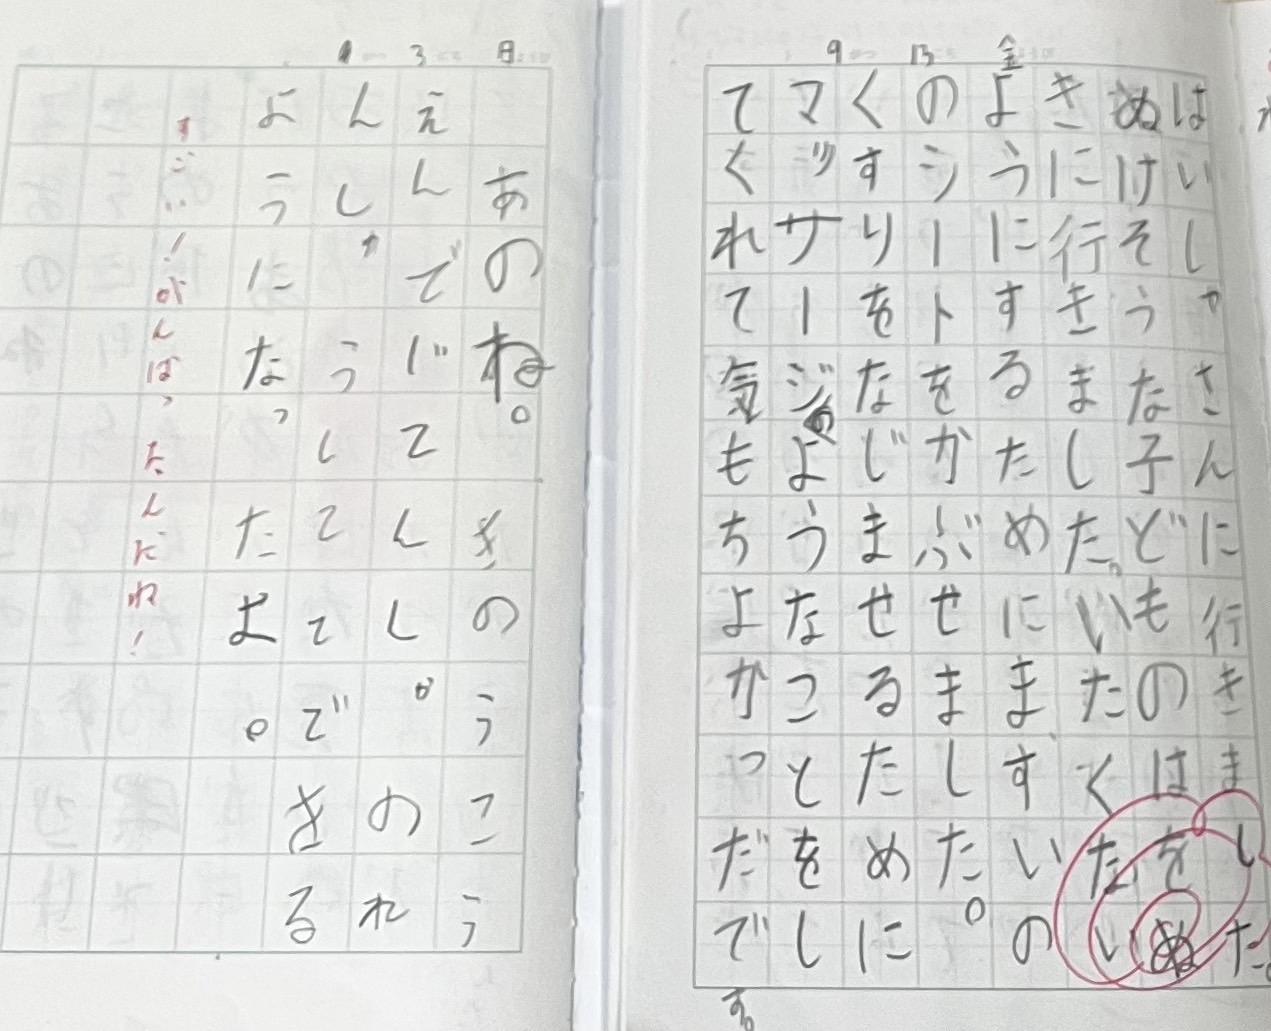 9 13 金
はいしゃさんに行きました。
ぬけそうな子どものはをぬ
きに行きました。いたくない
ようにするためにますいの
のシートをかぶせました。
くすりをなじませるために
マッサージのようなことをし
てくれて気もちよかったです。
3 日
あのね。きのうこう
えんでじてんしゃのれ
んしゅうしててできる
ようになったよ。
すごい!がんばったんだね!